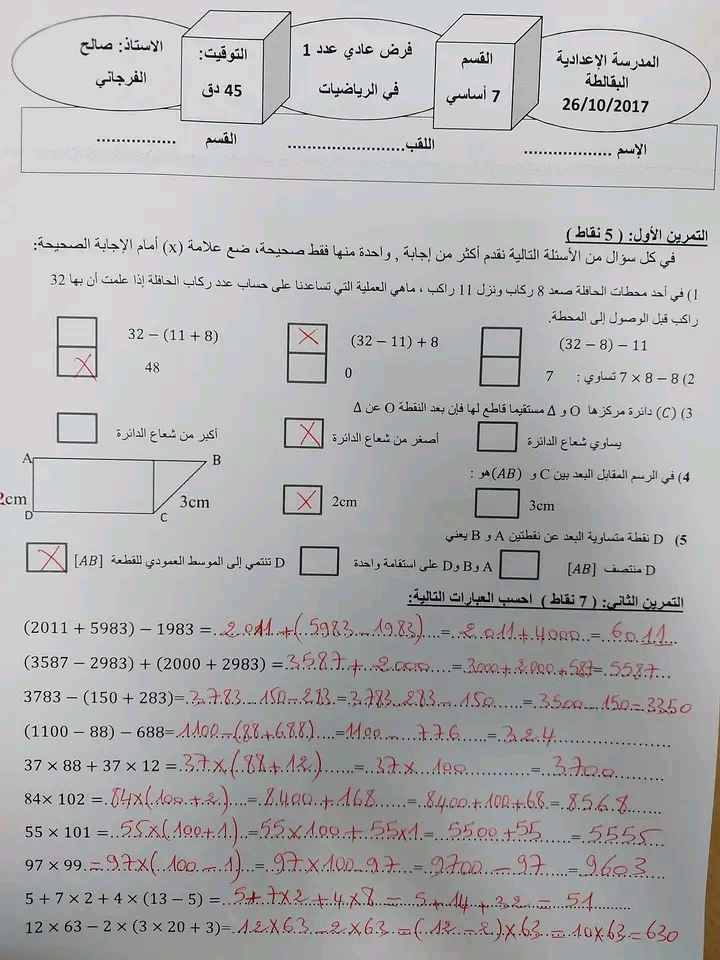 المدرسة الإعدادية
البقالطة
26/10/2017
القسم
7 أساسي
فرض عادي عدد 1
في الرياضيات
التوقيت:
45 دق
الاستاذ: صالح
الفرجاني
الإسم .................. اللقب........................ القسم ................
التمرين الأول: ( 5 نقاط )
في كل سؤال من الأسئلة التالية نقدم أكثر من إجابة , واحدة منها فقط صحيحة، ضع علامة (x) أمام الإجابة الصحيحة:
1) في أحد محطات الحافلة صعد 8 ركاب ونزل 11 راكب ، ماهي العملية التي تساعدنا على حساب عدد ركاب الحافلة إذا علمت أن بها 32
راكب قبل الوصول إلى المحطة.
(32 − 8) − 11
X (32 − 11) + 8
32 − (11 + 8)
2) 7 × 8 − 8 تساوي : 7
0
X 48
3) (C) دائرة مركزها O و Δ مستقيما قاطع لها فإن بعد النقطة O عن Δ
يساوي شعاع الدائرة
X أصغر من شعاع الدائرة
أكبر من شعاع الدائرة
4) في الرسم المقابل البعد بين C و (AB) هو :
3cm
X 2cm
A B
2cm 3cm
D C
5) D نقطة متساوية البعد عن نقطتين A و B يعني
D منتصف [AB]
A وB وD على استقامة واحدة
X D تنتمي إلى الموسط العمودي للقطعة [AB]
التمرين الثاني: ( 7 نقاط ) احسب العبارات التالية:
(2011 + 5983) − 1983 = 2011+(5983-1983) = 2011+4000 = 6011
(3587 − 2983) + (2000 + 2983) = 3587 + 2000 = 3000+2000+587 = 5587
3783 − (150 + 283)= 3783-150-283 = 3783-283-150 = 3500-150=3350
(1100 − 88) − 688= 1100-(88+688) =1100-776 = 324
37 × 88 + 37 × 12 = 37×(88+12) = 37×100 = 3700
84× 102 = 84×(100+2) = 8400+168 = 8400+100+68 = 8568
55 × 101 = 55×(100+1) = 55×100+55×1 = 5500+55 = 5555
97 × 99 = 97×(100-1) = 97×100-97 = 9700-97 = 9603
5 + 7 × 2 + 4 × (13 − 5) = 5+7×2+4×8 = 5+14+32 = 51
12 × 63 − 2 × (3 × 20 + 3)= 12×63-2×63 =(12-2)×63=10×63=630